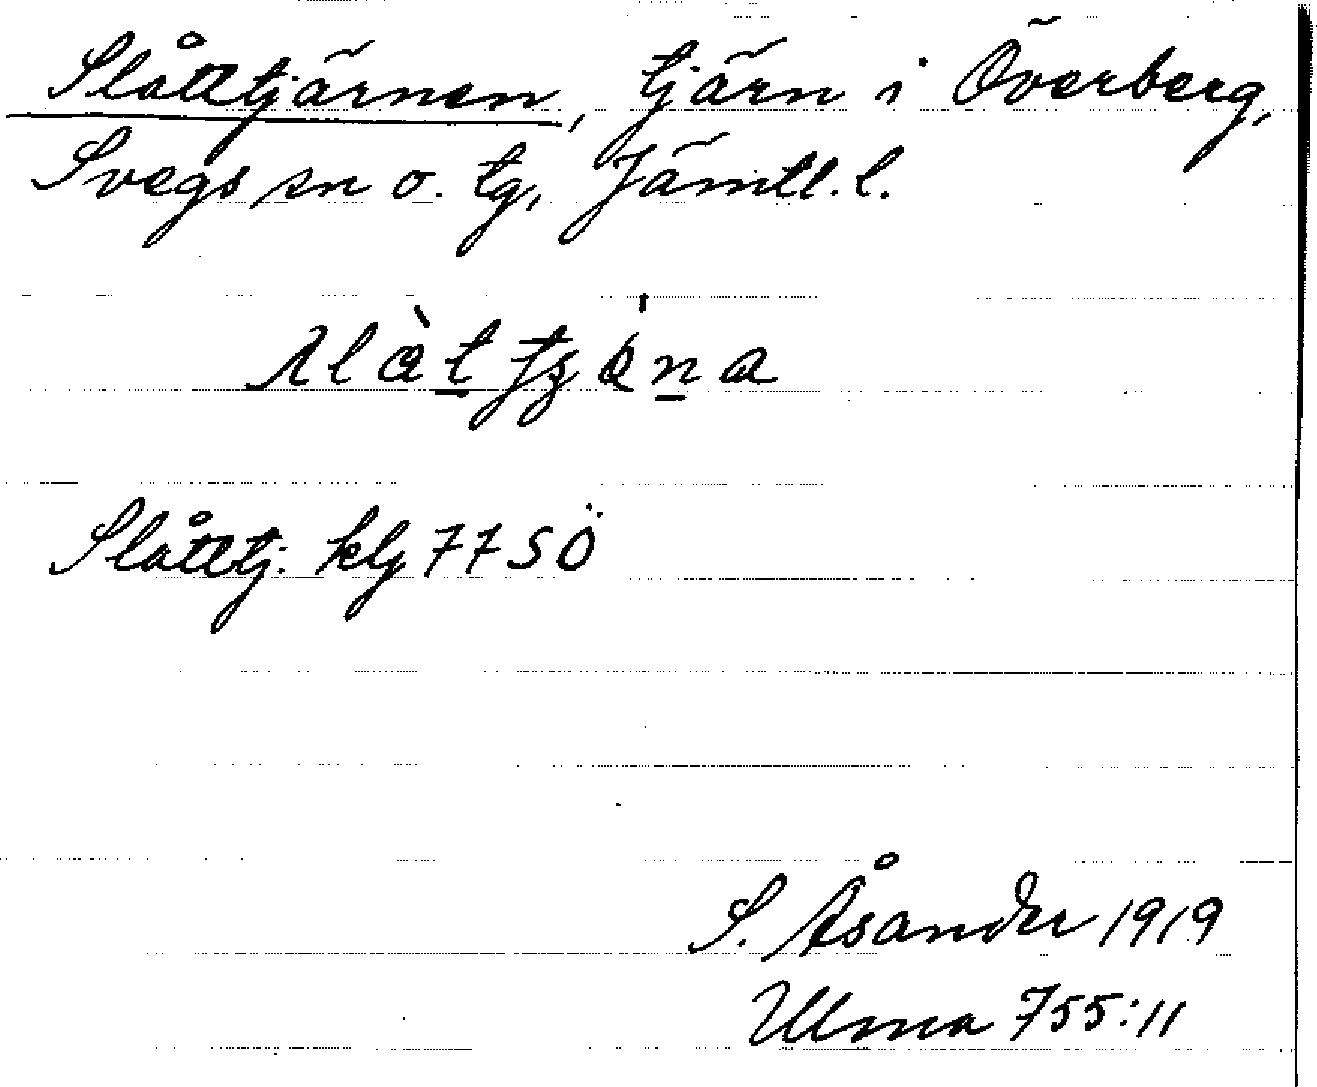 Slåttjärnen, tjärn i Överberg,
Svegs sn o. tg, Jämtl. l.
Slåttj. klj 77 SÖ
S. Åsander 1919
Ulma 755:11